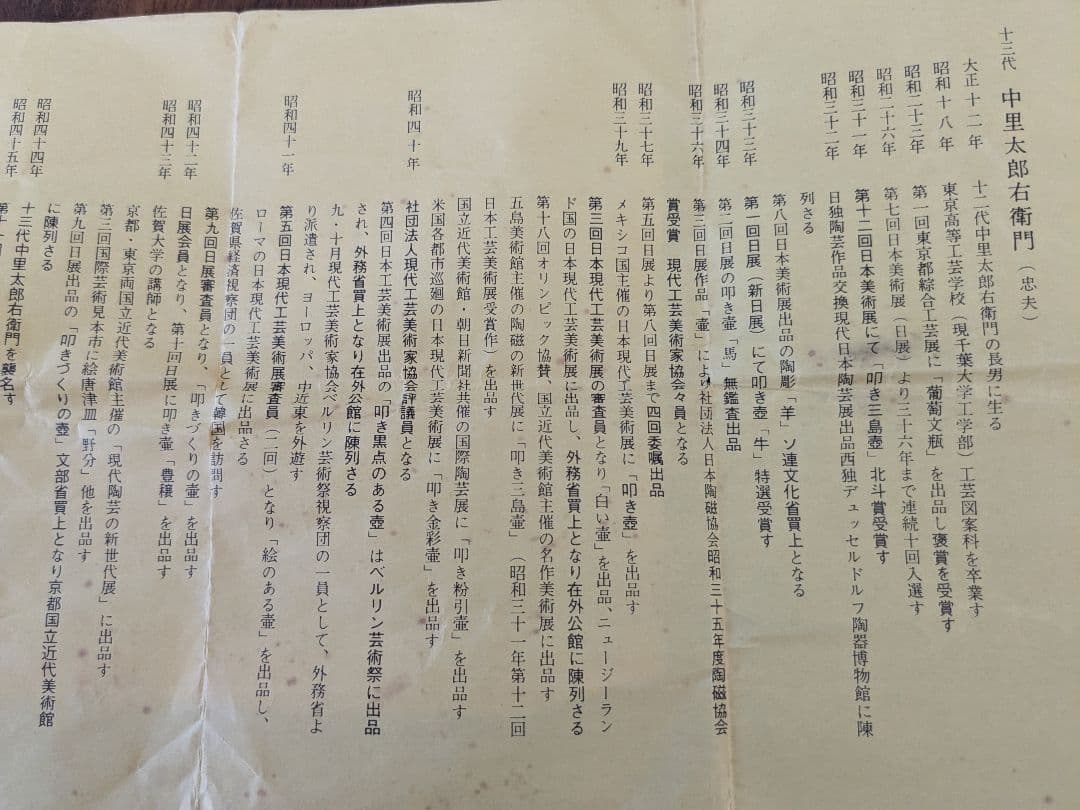 十三代 中里太郎右衛門(忠夫)
大正十二年 十二代中里太郎右衛門の長男に生る
昭和十八年 東京高等工芸学校(現千葉大学工学部)工芸図案科を卒業す
昭和二十三年 第一回東京都綜合工芸展に「葡萄文瓶」を出品し褒賞を受賞す
昭和二十六年 第七回日本美術展(日展)より三十六年まで連続十回入選す
昭和三十一年 第十二回日本美術展にて「叩き三島壺」北斗賞受賞す
昭和三十二年 日独陶芸作品交換現代日本陶芸展出品西独デュッセルドルフ陶器博物館に陳
列さる
第八回日本美術展出品の陶彫「羊」ソ連文化省買上となる
昭和三十三年 第一回日展(新日展)にて叩き壺「牛」特選受賞す
昭和三十四年 第二回日展の叩き壺「馬」無鑑査出品
昭和三十六年 第三回日展作品「壷」により社団法人日本陶磁協会昭和三十五年度陶磁協会
賞受賞 現代工芸美術家協会々員となる
昭和三十七年 第五回日展より第八回日展まで四回委嘱出品
昭和三十九年 メキシコ国主催の日本現代工芸美術展に「叩き壺」を出品す
第三回日本現代工芸美術展の審査員となり「白い壷」を出品、ニュージーラン
ド国の日本現代工芸美術展に出品し、外務省買上となり在外公館に陳列さる
第十八回オリンピック協賛、国立近代美術館主催の名作美術展に出品す
五島美術館主催の陶磁の新世代展に「叩き三島壷」(昭和三十一年第十二回
日本工芸美術展受賞作)を出品す
国立近代美術館・朝日新聞社共催の国際陶芸展に「叩き粉引壷」を出品す
米国各都市巡廻の日本現代工芸美術展に「叩き金彩壷」を出品す
昭和四十年 社団法人現代工芸美術家協会評議員となる
第四回日本工芸美術展出品の「叩き黒点のある壺」はベルリン芸術祭に出品
され、外務省買上となり在外公館に陳列さる
九・十月現代工芸美術家協会ベルリン芸術祭視察団の一員として、外務省よ
り派遣され、ヨーロッパ、中近東を外遊す
昭和四十一年 第五回日本現代工芸美術展審査員(二回)となり「絵のある壷」を出品し、
ローマの日本現代工芸美術展に出品さる
佐賀県経済視察団の一員として韓国を訪問す
昭和四十二年 第九回日展審査員となり、「叩きづくりの壷」を出品す
昭和四十三年 日展会員となり、第十回日展に叩き壷「豊穣」を出品す
佐賀大学の講師となる
京都・東京両国立近代美術館主催の「現代陶芸の新世代展」に出品す
第三回国際芸術見本市に絵唐津皿「野分」他を出品す
第九回日展出品の「叩きづくりの壺」文部省買上となり京都国立近代美術館
に陳列さる
昭和四十四年 十三代中里太郎右衛門を襲名す
昭和四十五年